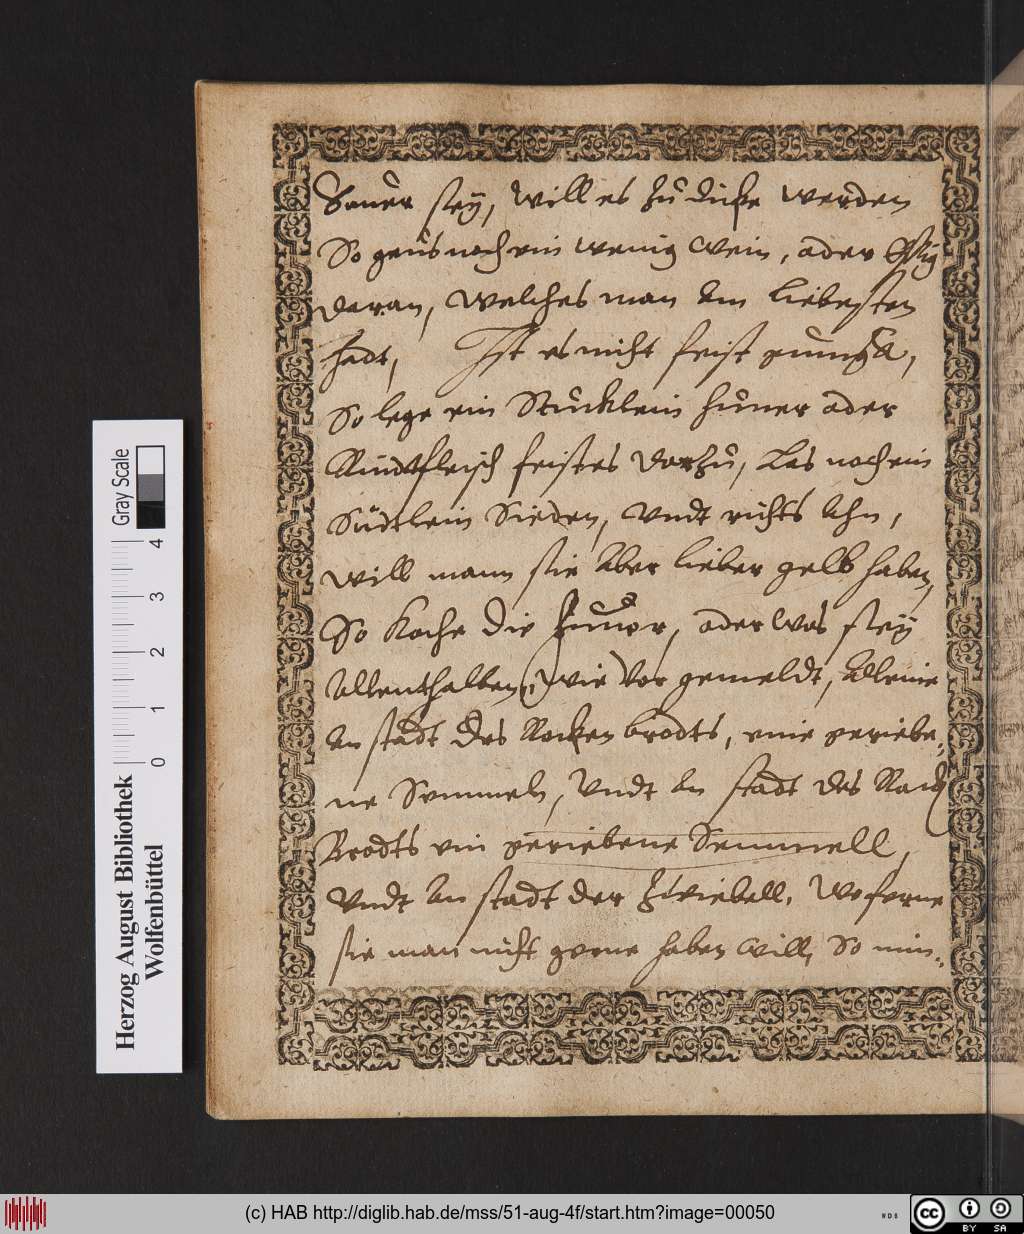 Sauer seÿ, will es zu dicke werden
So geus noch ein wenig Wein, oder Essig
daran, welches man am liebesten
hadt, Ist es nicht feist genugk,
So lege ein Stucklein huner oder
Rindtfleisch feistes darzu, Las noch ein
Südtlein Sieden, vndt richts Ahn,
will mann sie Aber lieber gelb haben,
So koche die huner, oder was seÿ
Allenthalben, wie vor gemeldt, Alleine
An stadt des Rocken brodts, eine geriebe-
ne Semmeln, Vndt An stadt des
Brodts ein geriebene Semmell,
Vndt An stadt der Zwiebell, Woferne
sie man nicht gerne haben will, So nim
Herzog August Bibliothek
Wolfenbüttel
Gray Scale
0 1 2 3 4
(c) HAB http://diglib.hab.de/mss/51-aug-4f/start.htm?image=00050
WDB
cc BY SA